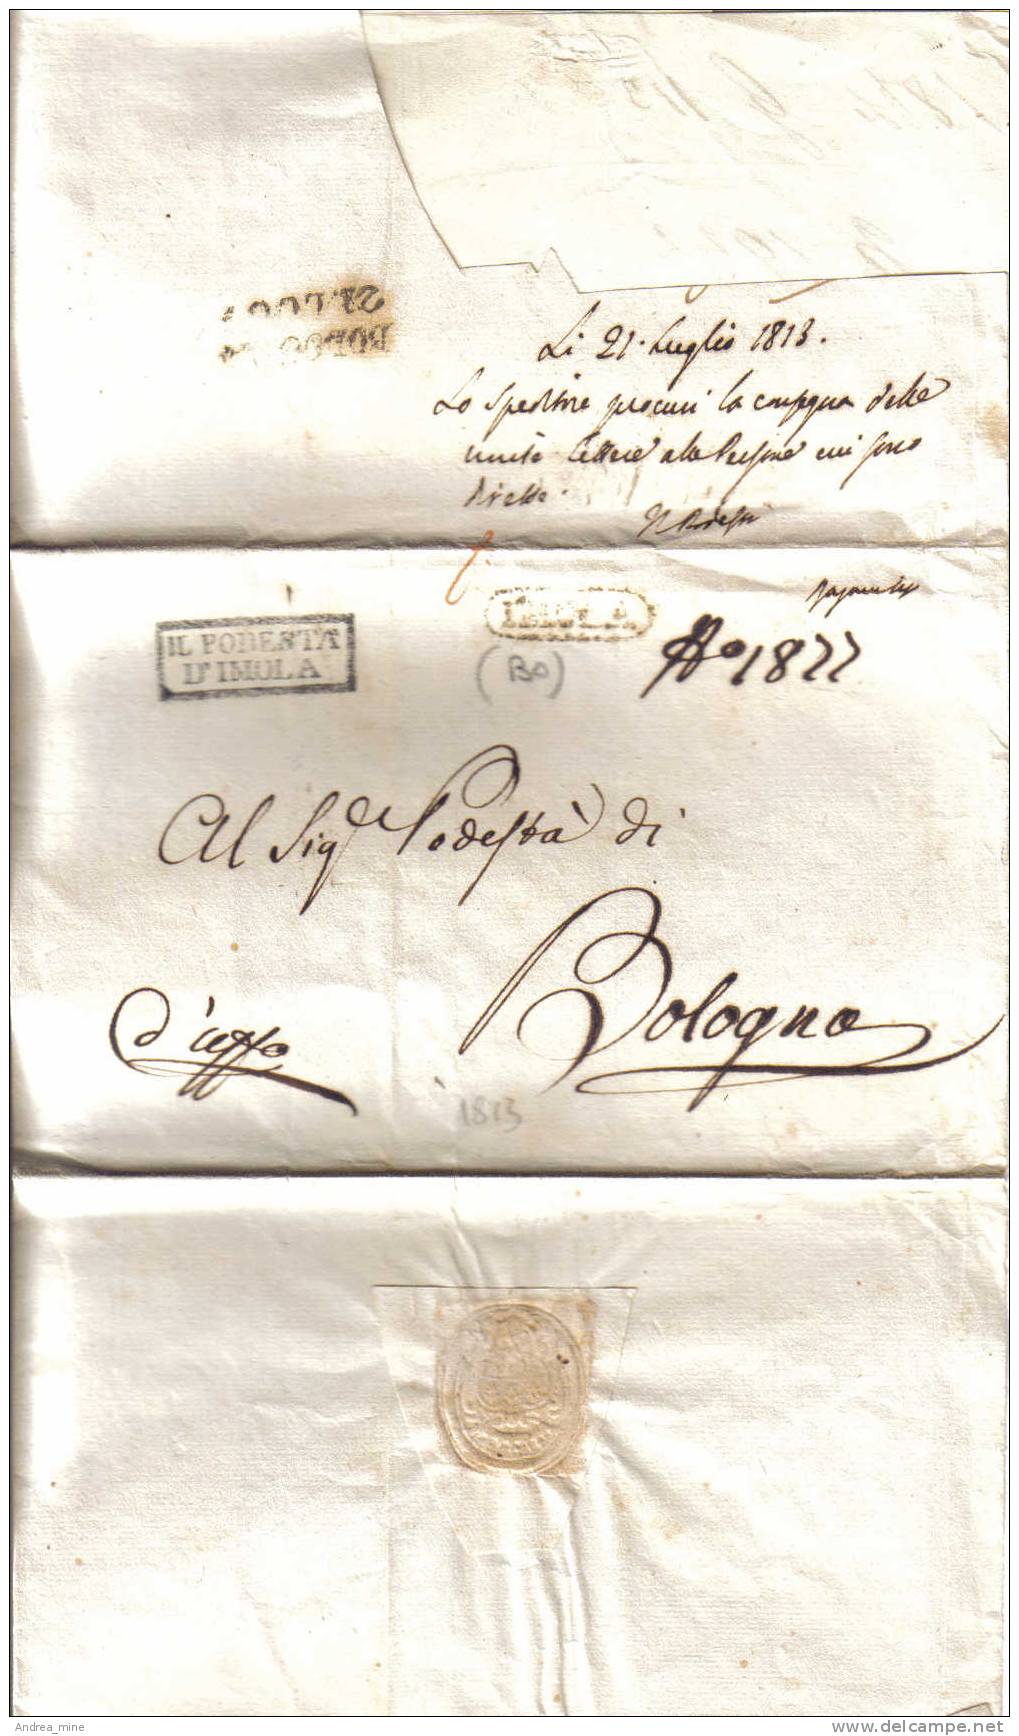 BOLOGNA
21. LUG.
Li 21. Luglio 1813.
Lo Speditore procuri la consegna delle
unite Lettere alle Persone cui sono
dirette.
Il Podestà
IL PODESTÀ
D'IMOLA
IMOLA
(BO)
No 1877
Al Sigr Podestà di
Bologna
d'uffo
1813
Andrea_mine
www.delcampe.net